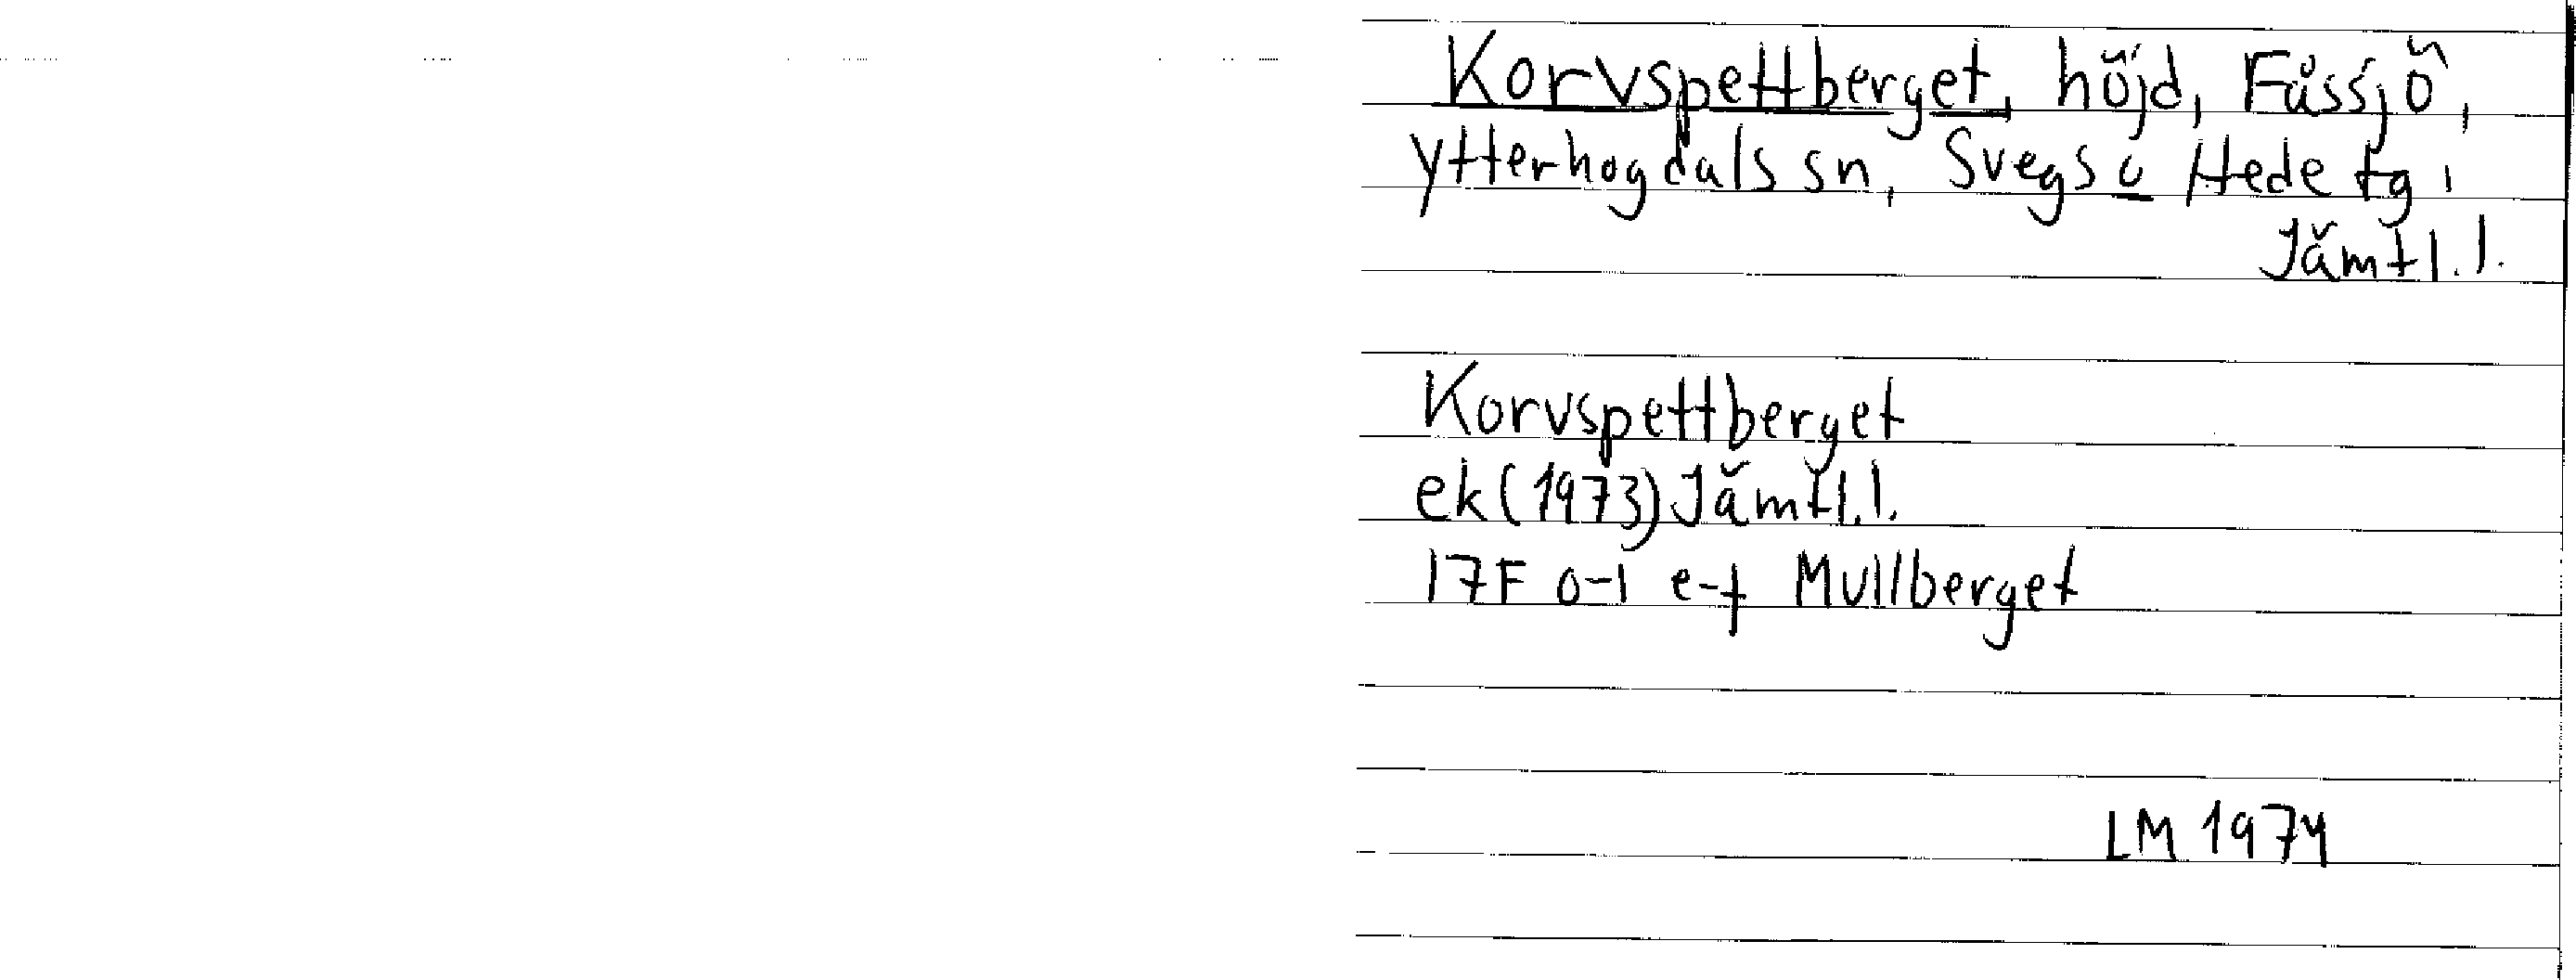 Korvspettberget, höjd, Fåssjö,
Ytterhogdals sn, Svegs o Hede tg,
Jämtl. l.
Korvspettberget
ek (1973) Jämtl. l.
17F 0-1 e-f Mullberget
LM 1974